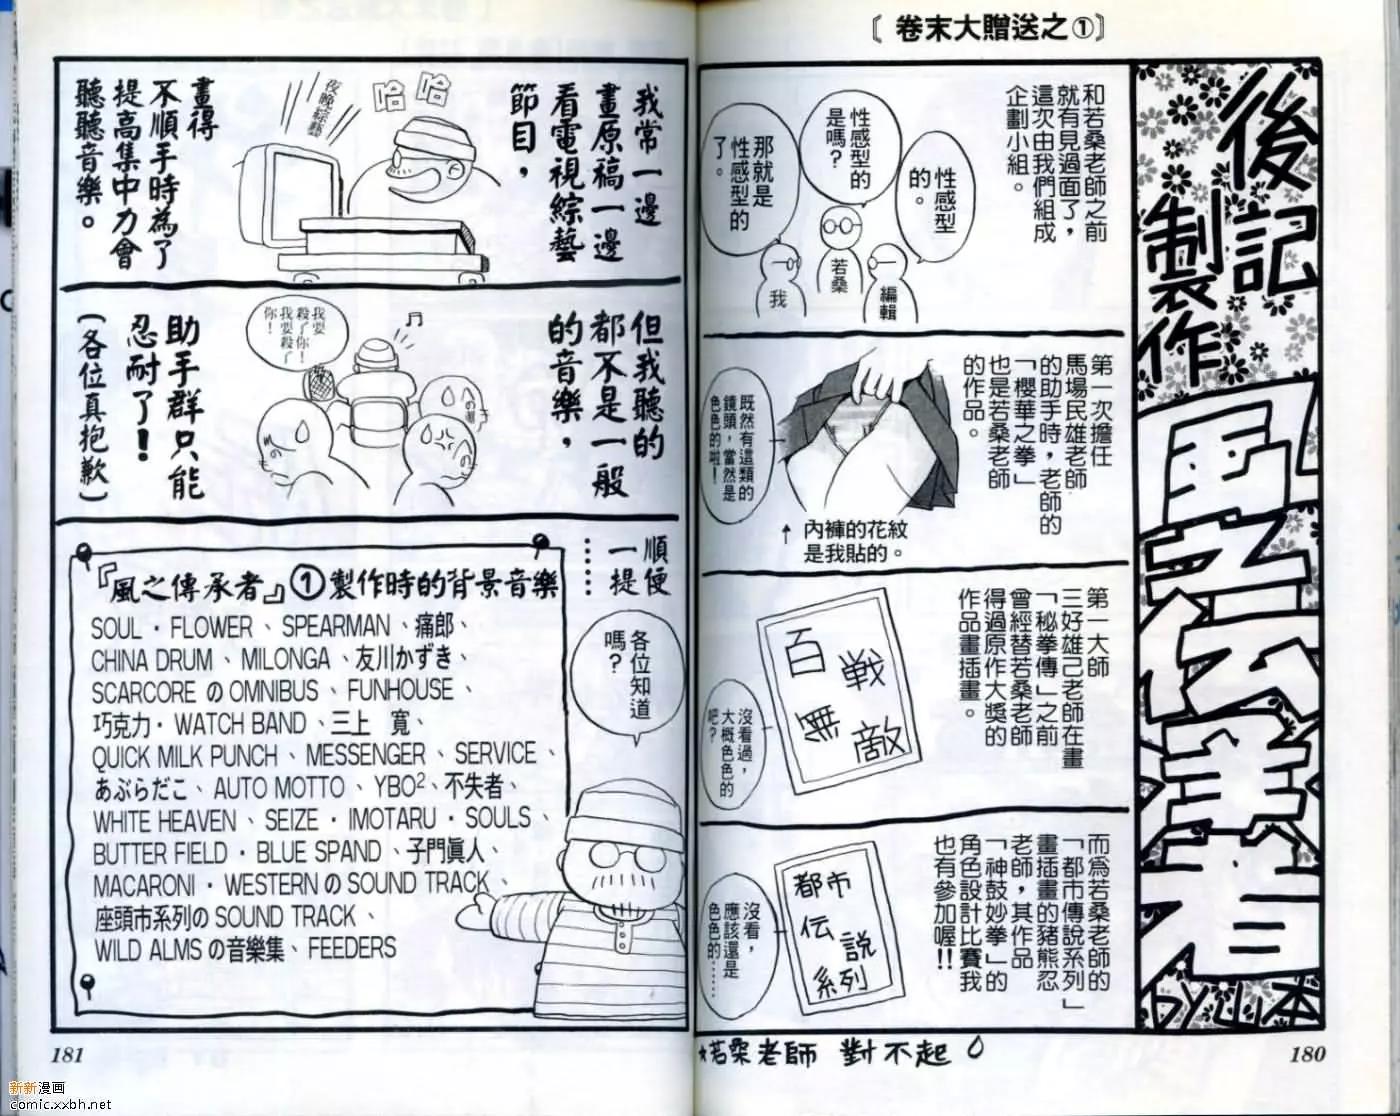 〖 卷末大贈送之①〗
後記
製作
風之傳承者
by 山本
和若桑老師之前
就有見過面了，
這次由我們組成
企劃小組。
性感型
的。
性感型的
是嗎？
那就是
性感型的
了。
編輯
若桑
我
第一次擔任
馬場民雄老師
的助手時，老師的
「櫻華之拳」
也是若桑老師
的作品。
既然有這類的
鏡頭，當然是
色色的啦！
↑ 內褲的花紋
是我貼的。
第一大師
三好雄己老師在畫
「秘拳傳」之前
曾經替若桑老師
得過原作大獎的
作品畫插畫。
百戰
無敵
沒看過，
大概色色的
吧？
而為若桑老師的
「都市傳說系列」
畫插畫的豬熊忍
老師，其作品
「神鼓妙拳」的
角色設計比賽我
也有參加喔!!
都市
伝説
系列
沒看，
應該還是
色色的……
★若桑老師 對不起
180
我常一邊
畫原稿一邊
看電視綜藝
節目，
哈
哈
夜晚綜藝
畫得
不順手時為了
提高集中力會
聽聽音樂。
但我聽的
都不是一般
的音樂，
我要
殺了你！
我要殺了
你！
助手群只能
忍耐了！
(各位真抱歉)
順便
一提
……
各位知道
嗎？
『風之傳承者』①製作時的背景音樂
SOUL・FLOWER、SPEARMAN、痛郎、
CHINA DRUM、MILONGA、友川かずき、
SCARCORE の OMNIBUS、FUNHOUSE、
巧克力・WATCH BAND、三上 寬、
QUICK MILK PUNCH、MESSENGER、SERVICE、
あぶらだこ、AUTO MOTTO、YBO²、不失者、
WHITE HEAVEN、SEIZE・IMOTARU・SOULS、
BUTTER FIELD・BLUE SPAND、子門眞人、
MACARONI・WESTERNの SOUND TRACK、
座頭市系列の SOUND TRACK、
WILD ALMS の音樂集、FEEDERS
181
新新漫画
comic.xxbh.net